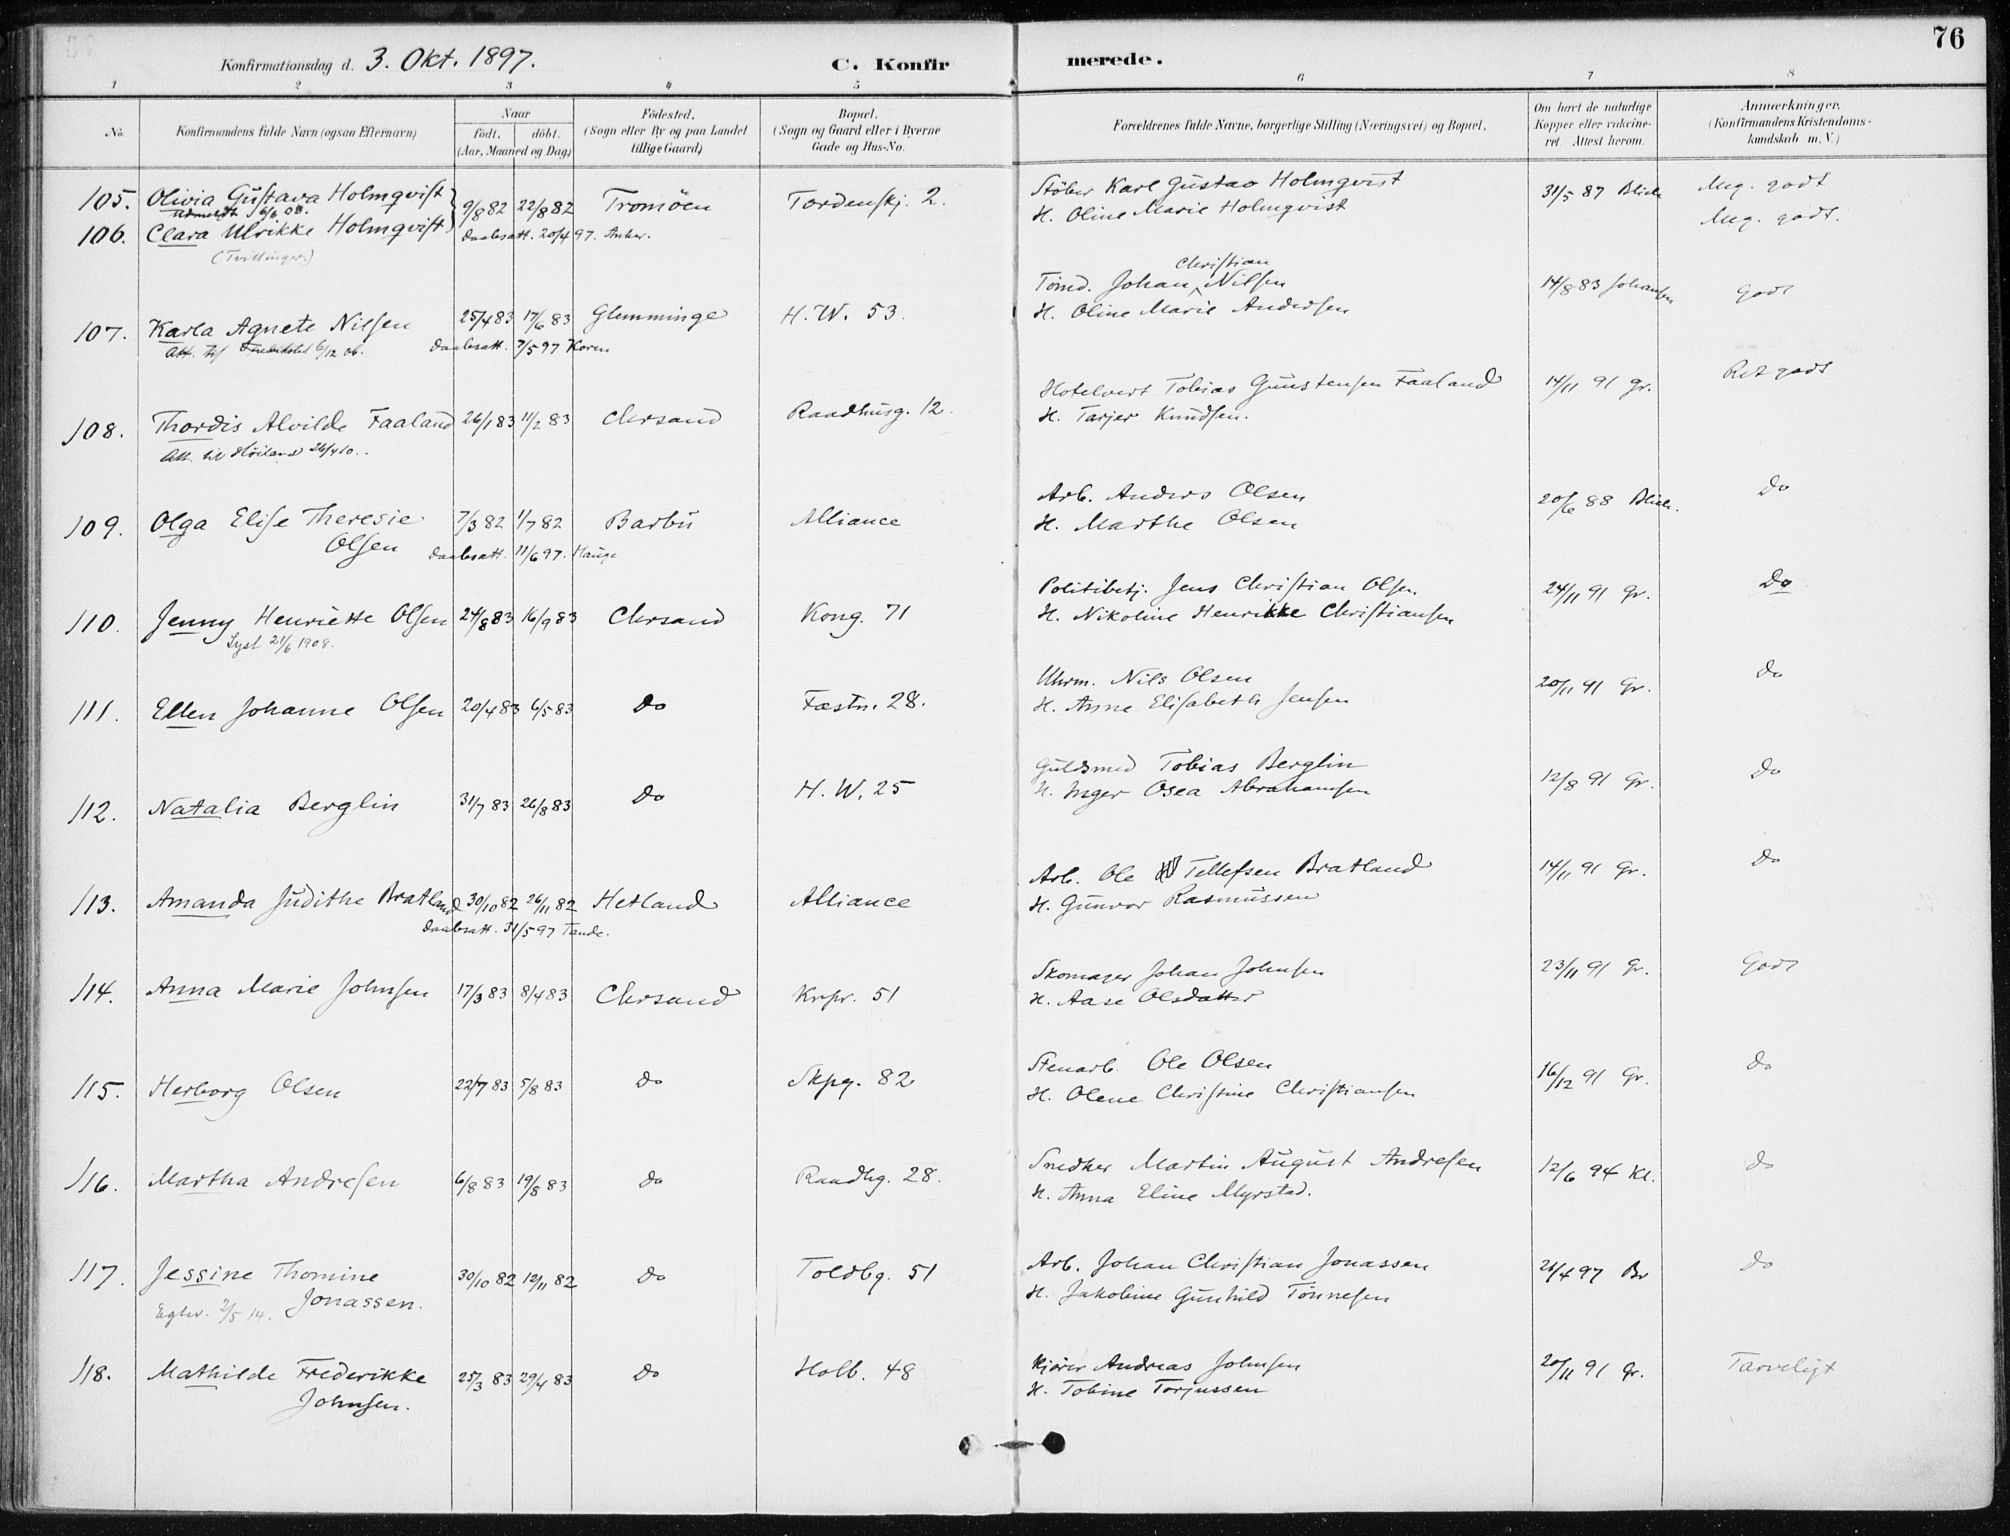 76
Konfirmationsdag d. 3. Okt. 1897.
C. Konfir merede.
1 2 3 4 5 6 7 8
No.
Konfirmandens fulde Navn (ogsaa Efternavn)
Naar
født. døbt.
(Aar, Maaned og Dag)
Fødested.
(Sogn eller By og paa Landet
tillige Gaard)
Bopæl.
(Sogn og Gaard eller i Byerne
Gade og Hus-No.
Forældrenes fulde Navne, borgerlige Stilling (Næringsvei) og Bopæl.
Om havt de naturlige
Kopper eller vakcine-
ret. Attest herom.
Anmærkninger.
(Konfirmandens Kristendoms-
kundskab m. V.)
105. Olivia Gustava Holmqvist 9/8 82 22/8 82 Tromöen Tordenskj. 2. Støber Karl Gustav Holmqvist 31/5 87 Blich Meg. godt
Udmeldt
106. Clara Ulrikke Holmqvist Daabsatt. 20/4 97. Anker. H. Oline Marie Holmqvist Meg. godt.
(Tvillinger.)
107. Karla Agnete Nilsen 25/4 83 17/6 83 Glemminge H. W. 53. Tømd. Johan Christian Nilsen 14/8 83 Johansen Godt
Att. til Fredrikstad 6/12 06. Daabsatt. 7/5 97 Koren H. Oline Marie Andersen
108. Thordis Alvilde Faaland 26/1 83 11/2 83 Chrsand Raadhusg. 12. Hotelvert Tobias Gunstensen Faaland 14/11 91 Gr. Ret godt
Att. til Höiland 26/4 10. H. Tarjer Knudsen.
109. Olga Elise Theresie 7/3 82 1/7 82 Barbu Alliance Arb. Anders Olsen 20/6 88 Blich. Do
Olsen Daabsatt. 11/6 97. Hauge H. Marthe Olsen
110. Jenny Henriette Olsen 24/8 83 16/9 83 Chrsand Kong. 71 Politibetj. Jens Christian Olsen 24/11 91 Gr. Do
Lyst 21/6 1908. H. Nikoline Henrikke Christiansen
111. Ellen Johanne Olsen 20/4 83 6/5 83 Do Fæstn. 28. Uhrm. Nils Olsen 20/11 91 Gr. Do
H. Anne Elisabeth Jensen
112. Natalia Berglin 31/7 83 26/8 83 Do H. W. 25 Guldsmed Tobias Berglin 12/8 91 Gr. Do
H. Inger Osea Abrahamsen
113. Amanda Judithe Bratland 30/10 82 26/11 82 Hetland Alliance Arb. Ole Tellefsen Bratland 14/11 91 Gr. Do
Daabsatt. 31/5 97 Tande. H. Gunvor Rasmussen
114. Anna Marie Johnsen 17/3 83 8/4 83 Chrsand Krpr. 51 Skomager Johan Johnsen 23/11 91 Gr. Godt
H. Aase Olsdatter
115. Herborg Olsen 22/7 83 5/8 83 Do Skpg. 82 Stenarb. Ole Olsen 16/12 91 Gr. Do
H. Olene Christine Christiansen
116. Martha Andresen 6/8 83 19/8 83 Do Raadhg. 28. Snedker Martin August Andresen 12/6 94 Kl. Do
H. Anna Eline Myrstad.
117. Jessine Thomine 30/10 82 12/11 82 Do Toldbg. 51 Arb. Johan Christian Jonassen 21/4 97 Br Do
Egtev. 2/5 14. Jonassen. H. Jakobine Gunhild Tönnesen
118. Mathilde Frederikke 25/3 83 29/4 83 Do Holb. 48 Kjörer Andreas Johnsen 20/11 91 Gr. Tarveligt
Johnsen. H. Tobine Torjussen